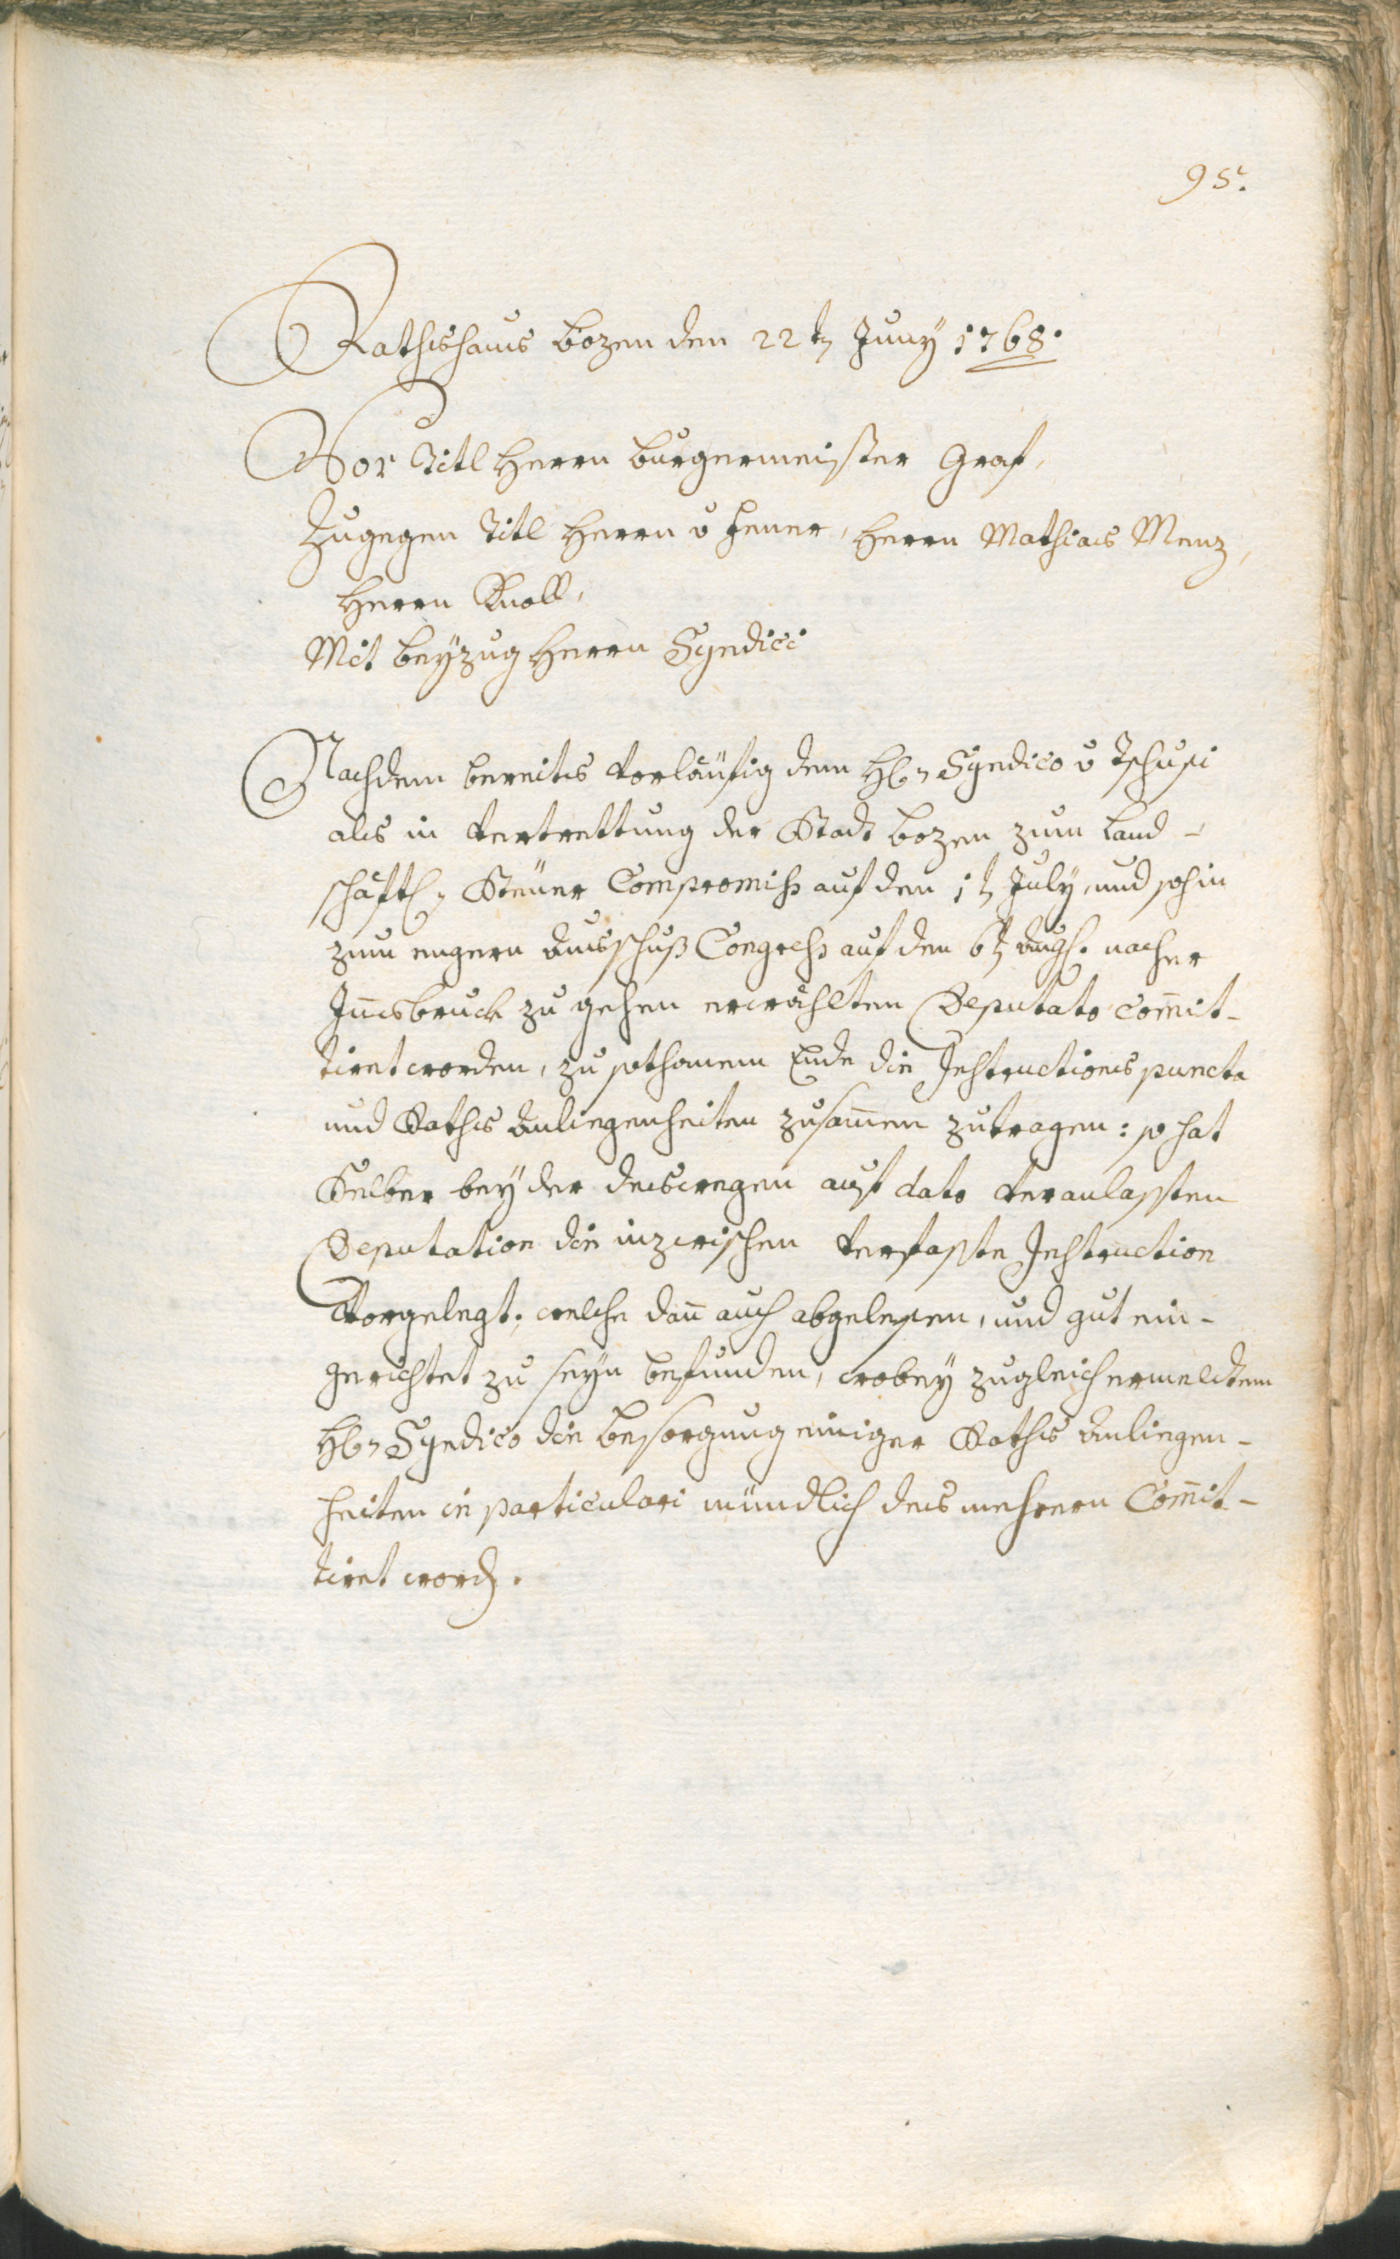 95.
Rathshaus Bozen den 22tn Juny 1768.
Vor Titl Herrn Burgermeister Graf,
Zugegen Titl Herrn v Hener, Herrn Mathias Menz,
Herrn Knoll,
Mit beyzug Herrn Syndici
Nachdem bereits vorläufig dem Hln Syndico v Tschusi
als in Vertrettung der Statt Bozen zum Land-
schäftl. Steuer Compromiss auf den 1t July, und sohin
zum engern Ausschuß Congress auf den 6t Augst. nacher
Jnnsbruck zu gehen erwählten Deputato Com̄it-
tiret worden, zu sothanem Ende die Instructions puncta
und Raths Anliegenheiten zusam̄en zutragen: so hat
Selber bey der deswegen auf dato veranlassten
Deputation die inzwischen verfaßte Instruction
Vorgelegt; welche dan̄ auch abgelesen, und gut ein-
gerichtet zu seyn befunden, wobey zugleich ermeldtem
Hln Syndico die besorgung einiger Raths Anliegen-
heiten in particulari mündlich des mehrern Com̄it-
tiret word.